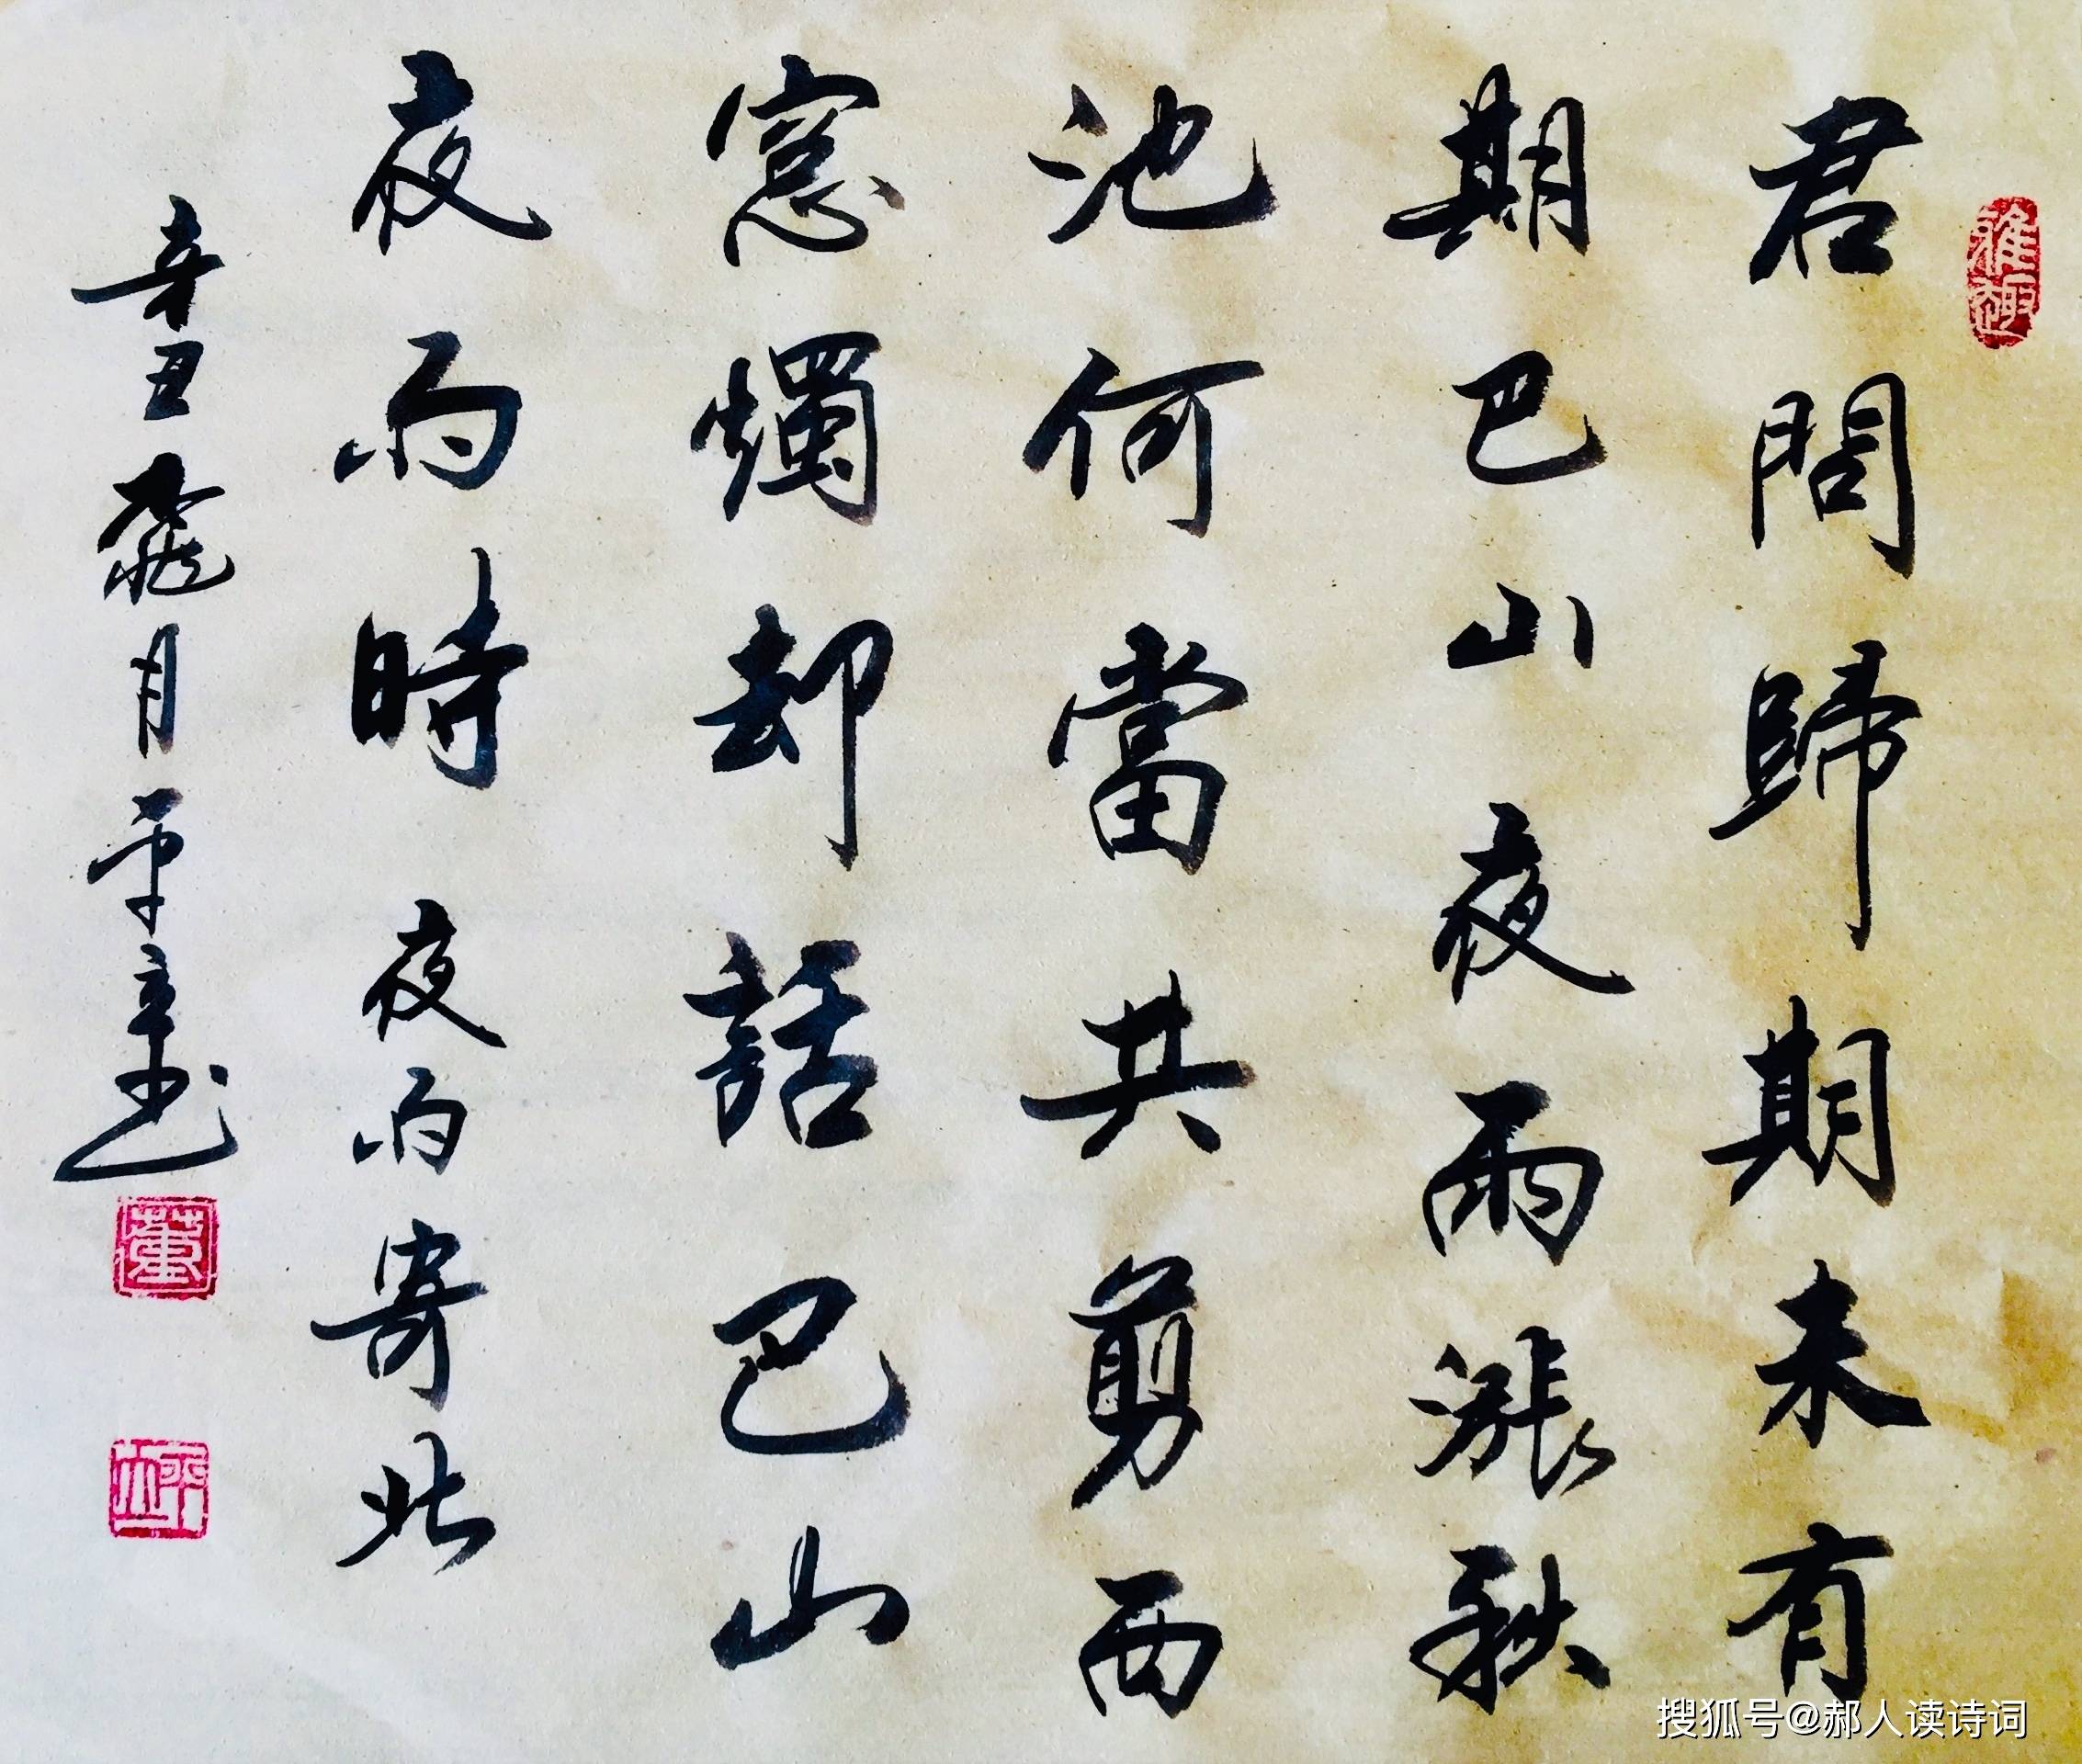 雅趣
君問歸期未有
期巴山夜雨漲秋
池何當共剪西
窓燭却話巴山
夜雨時 夜雨寄北
辛丑月平章书
董
搜狐号@郝人读诗词